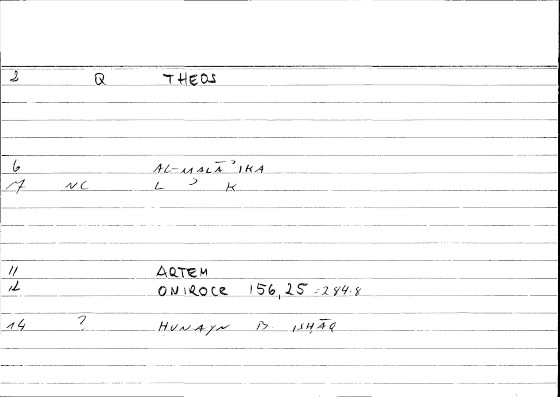 2 Q THEOS
6 AL-MALĀʾIKA
7 NC L ʾ K
11 ARTEM
12 ONIROCR 156,25 = 284.8
14 ? ḤUNAYN B. ISḤĀQ